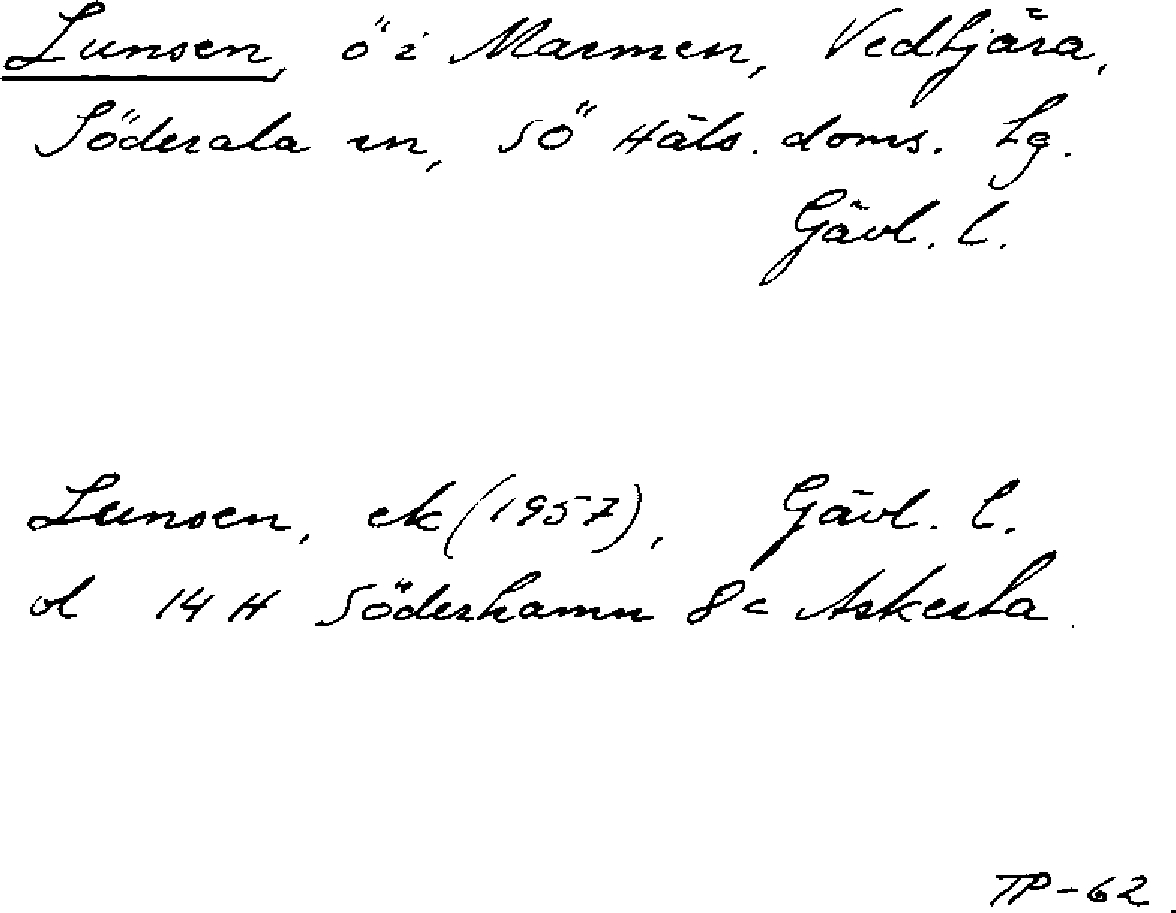 Lunsen, ö i Marmen, Vedtjära,
Söderala sn, SÖ Häls. doms. tg.
Gävl. l.
Lunsen, ek (1957), Gävl. l.
bl 14 H Söderhamn 8c Askesta
TP-62